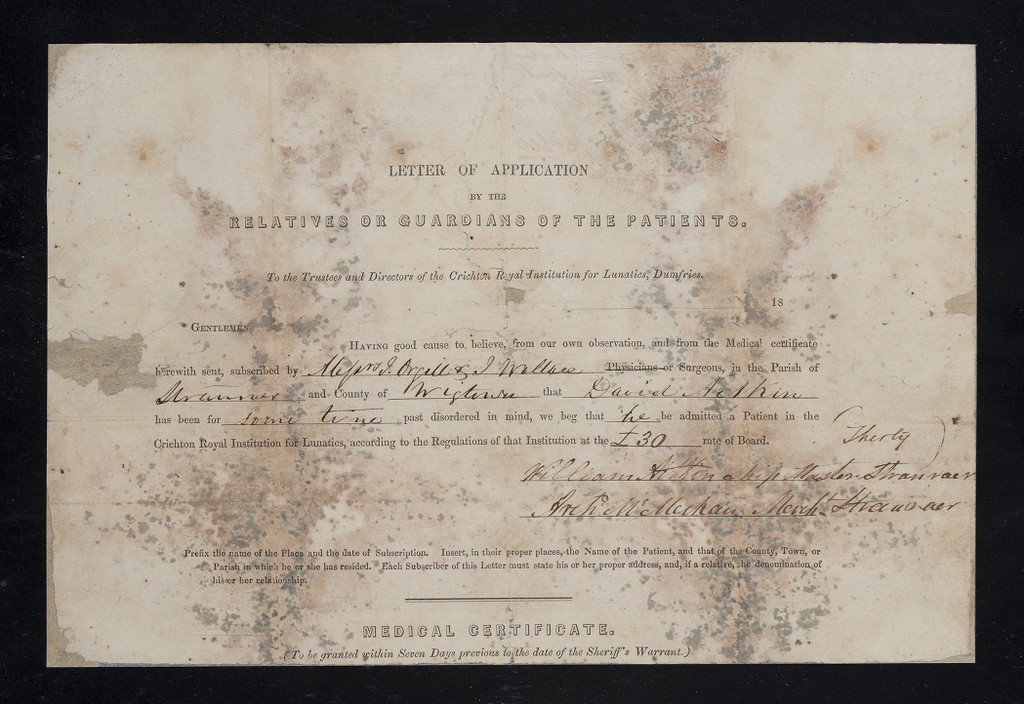 LETTER OF APPLICATION
BY THE
RELATIVES OR GUARDIANS OF THE PATIENTS.
To the Trustees and Directors of the Crichton Royal Institution for Lunatics, Dumfries.
18
GENTLEMEN
HAVING good cause to believe, from our own observation, and from the Medical certificate
herewith sent, subscribed by Messrs J. Orgill & J Wallace Physicians or Surgeons, in the Parish of
Stranraer and County of Wigtown that David Aitkin
has been for some time past disordered in mind, we beg that he be admitted a Patient in the
Crichton Royal Institution for Lunatics, according to the Regulations of that Institution at the £30 rate of Board. (Therty)
William Aitken Ship Master Stranraer
Archd McMeckan Mercht Stranraer
Prefix the name of the Place and the date of Subscription. Insert, in their proper places, the Name of the Patient, and that of the County, Town, or
Parish in which he or she has resided. Each Subscriber of this Letter must state his or her proper address, and, if a relative, the denomination of
his or her relationship.
MEDICAL CERTIFICATE.
(To be granted within Seven Days previous to the date of the Sheriff's Warrant.)